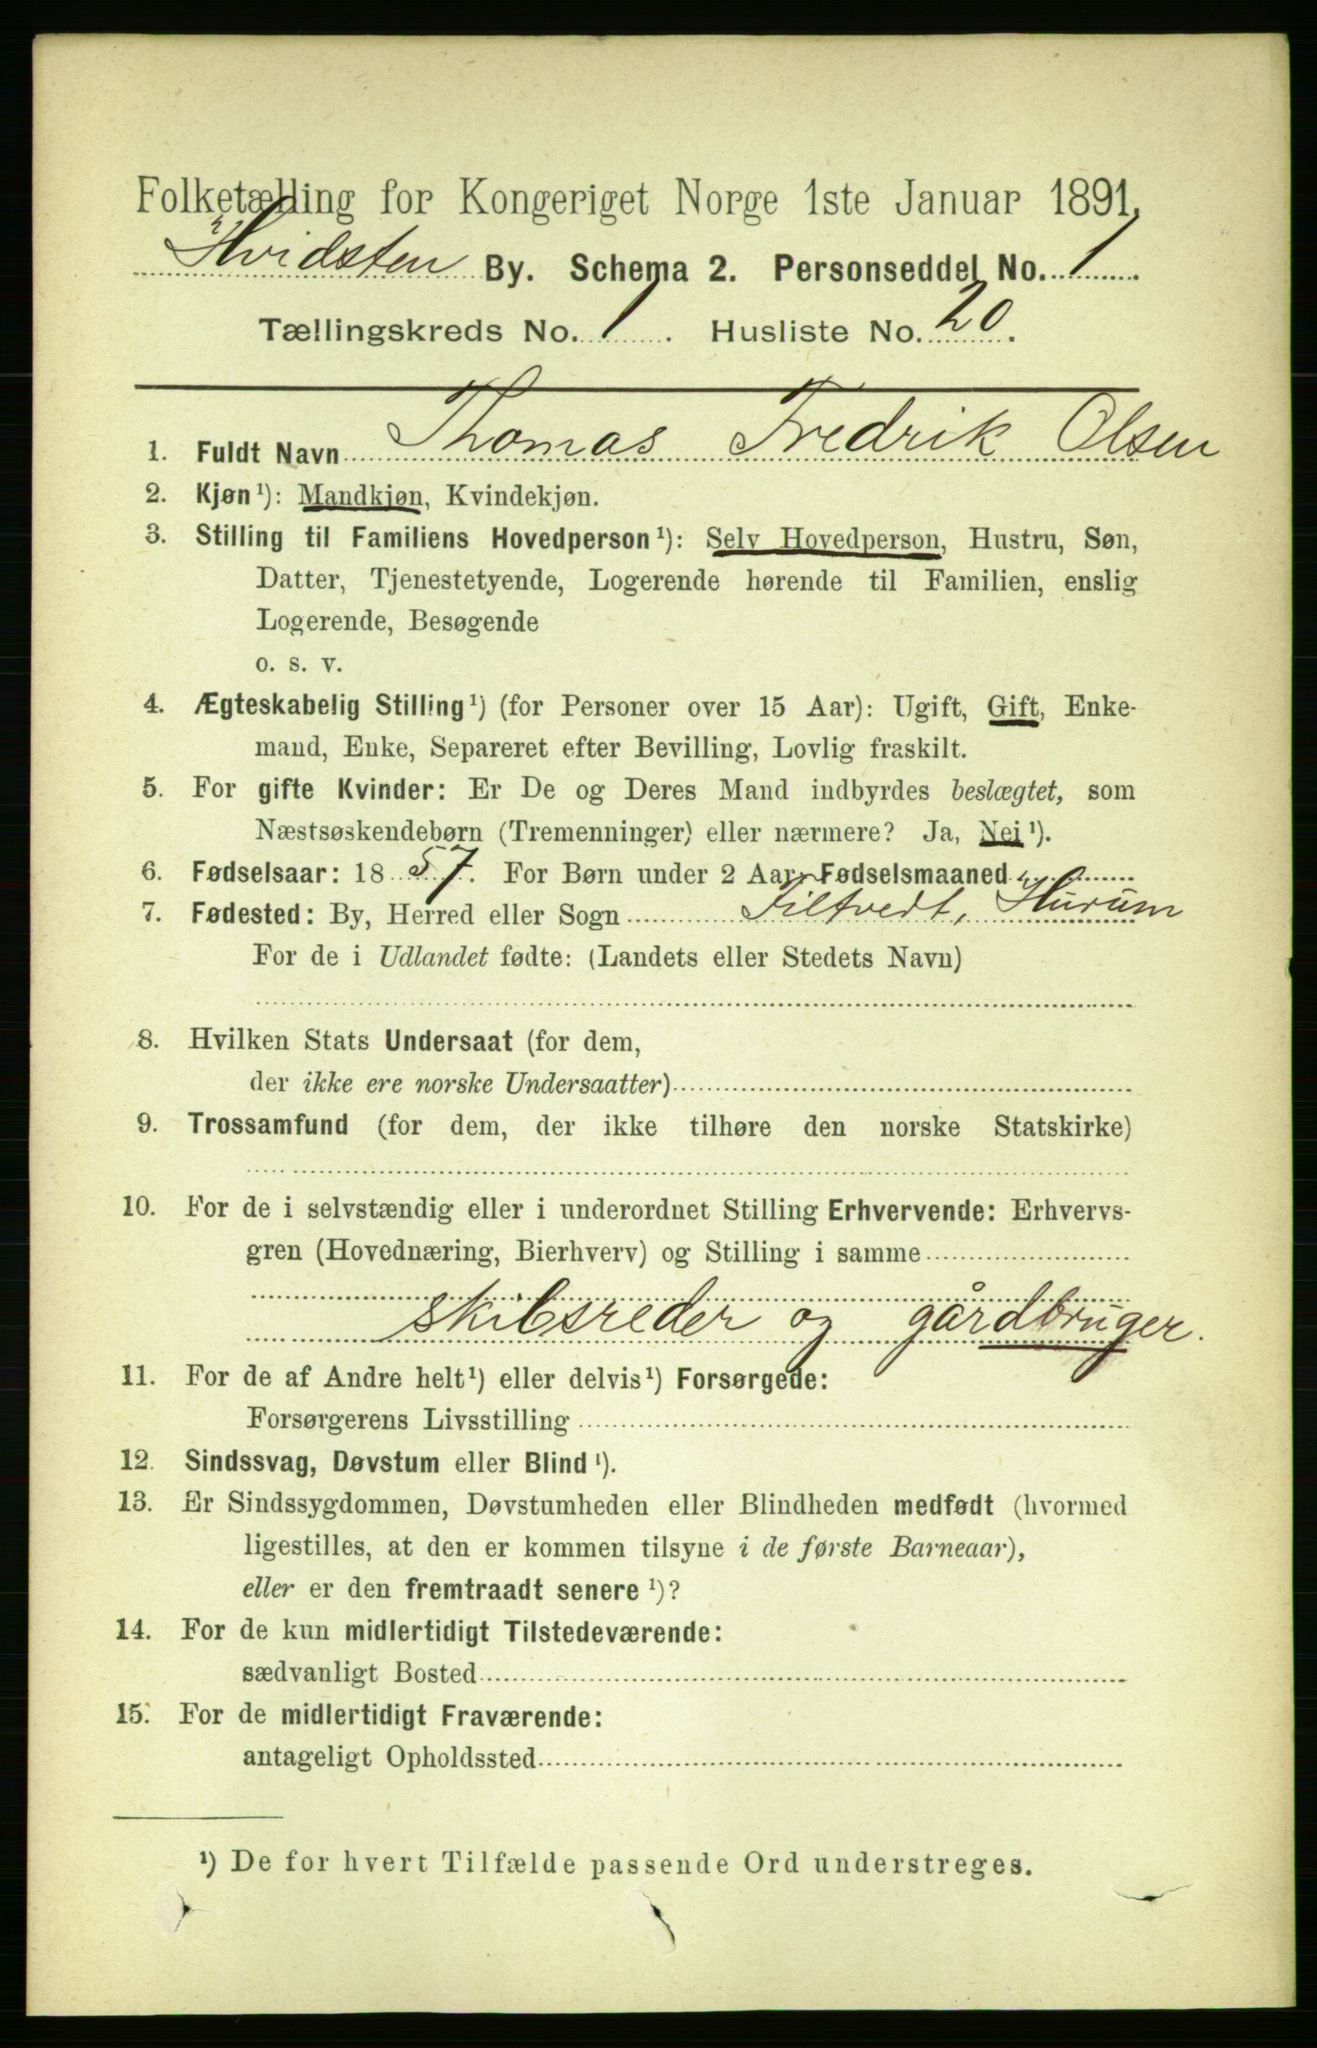 Folketælling for Kongeriget Norge 1ste Januar 1891.
Hvidsten By. Schema 2. Personseddel No. 1
Tællingskreds No. 1. Husliste No. 20.
1. Fuldt Navn Thomas Fredrik Olsen
2. Kjøn¹): Mandkjøn, Kvindekjøn.
3. Stilling til Familiens Hovedperson¹): Selv Hovedperson, Hustru, Søn,
Datter, Tjenestetyende, Logerende hørende til Familien, enslig
Logerende, Besøgende
o. s. v.
4. Ægteskabelig Stilling¹) (for Personer over 15 Aar): Ugift, Gift, Enke-
mand, Enke, Separeret efter Bevilling, Lovlig fraskilt.
5. For gifte Kvinder: Er De og Deres Mand indbyrdes beslægtet, som
Næstsøskendebørn (Tremenninger) eller nærmere? Ja, Nei¹).
6. Fødselsaar: 1857. For Børn under 2 Aar, Fødselsmaaned
7. Fødested: By, Herred eller Sogn Filtvedt, Hurum
For de i Udlandet fødte: (Landets eller Stedets Navn)
8. Hvilken Stats Undersaat (for dem,
der ikke ere norske Undersaatter)
9. Trossamfund (for dem, der ikke tilhøre den norske Statskirke)
10. For de i selvstændig eller i underordnet Stilling Erhvervende: Erhvervs-
gren (Hovednæring, Bierhverv) og Stilling i samme
skibsreder og gårdbruger.
11. For de af Andre helt¹) eller delvis¹) Forsørgede:
Forsørgerens Livsstilling
12. Sindssvag, Døvstum eller Blind¹).
13. Er Sindssygdommen, Døvstumheden eller Blindheden medfødt (hvormed
ligestilles, at den er kommen tilsyne i de første Barneaar),
eller er den fremtraadt senere¹)?
14. For de kun midlertidigt Tilstedeværende:
sædvanligt Bosted
15. For de midlertidigt Fraværende:
antageligt Opholdssted
¹) De for hvert Tilfælde passende Ord understreges.